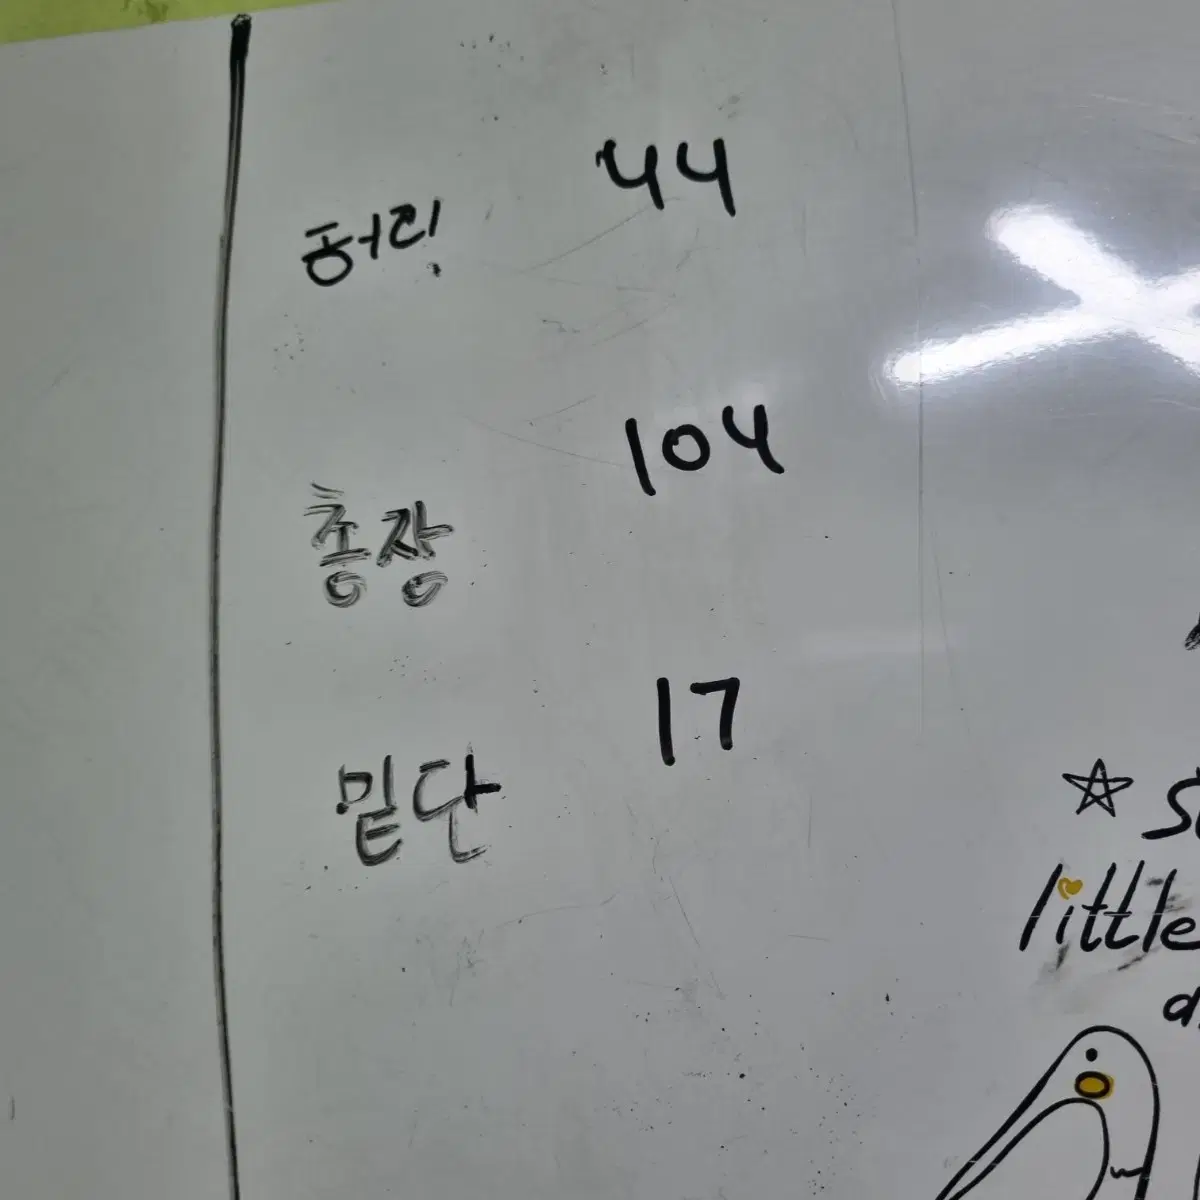 허리 44
총장 104
밑단 17
little